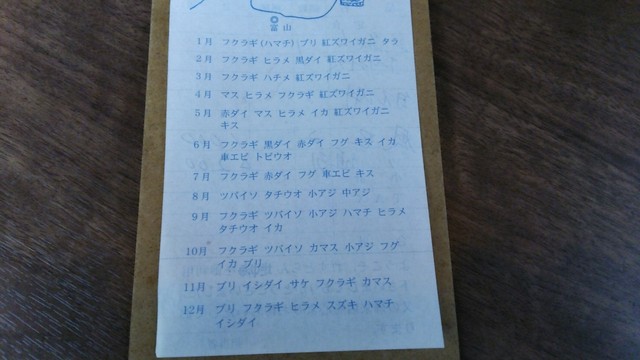 ◎
富山
1月 フクラギ(ハマチ) ブリ 紅ズワイガニ タラ
2月 フクラギ ヒラメ 黒ダイ 紅ズワイガニ
3月 フクラギ ハチメ 紅ズワイガニ
4月 マス ヒラメ フクラギ 紅ズワイガニ
5月 赤ダイ マス ヒラメ イカ 紅ズワイガニ
キス
6月 フクラギ 黒ダイ 赤ダイ フグ キス イカ
車エビ トビウオ
7月 フクラギ 赤ダイ フグ 車エビ キス
8月 ツバイソ タチウオ 小アジ 中アジ
9月 フクラギ ツバイソ 小アジ ハマチ ヒラメ
タチウオ イカ
10月 フクラギ ツバイソ カマス 小アジ フグ
イカ ブリ
11月 ブリ イシダイ サケ フクラギ カマス
12月 ブリ フクラギ ヒラメ スズキ ハマチ
イシダイ